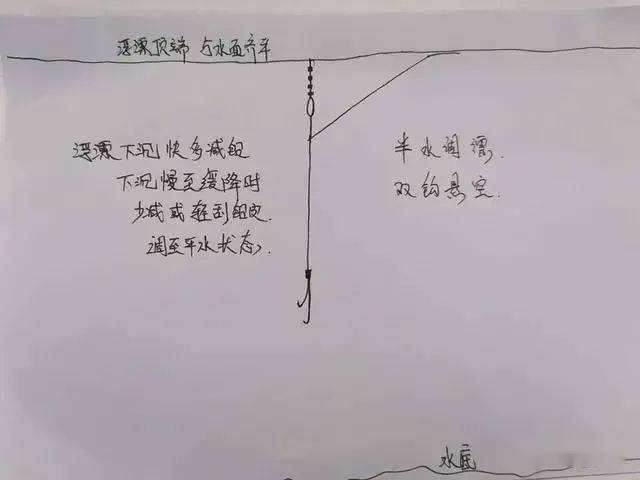 浮漂顶端 与水面齐平
浮漂下沉快多减铅
下沉慢至缓降时
少减或轻刮铅皮
调至平水状态
半水调漂
双钩悬空
水底